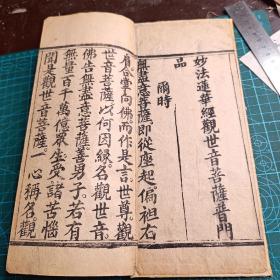 妙法蓮華經觀世音菩薩普門
品
爾時
無盡意菩薩即從座起偏袒右
肩合掌向佛而作是言世尊觀
世音菩薩以何因緣名觀世音
佛告無盡意菩薩善男子若有
無量百千萬億眾生受諸苦惱
聞是觀世音菩薩一心稱名觀